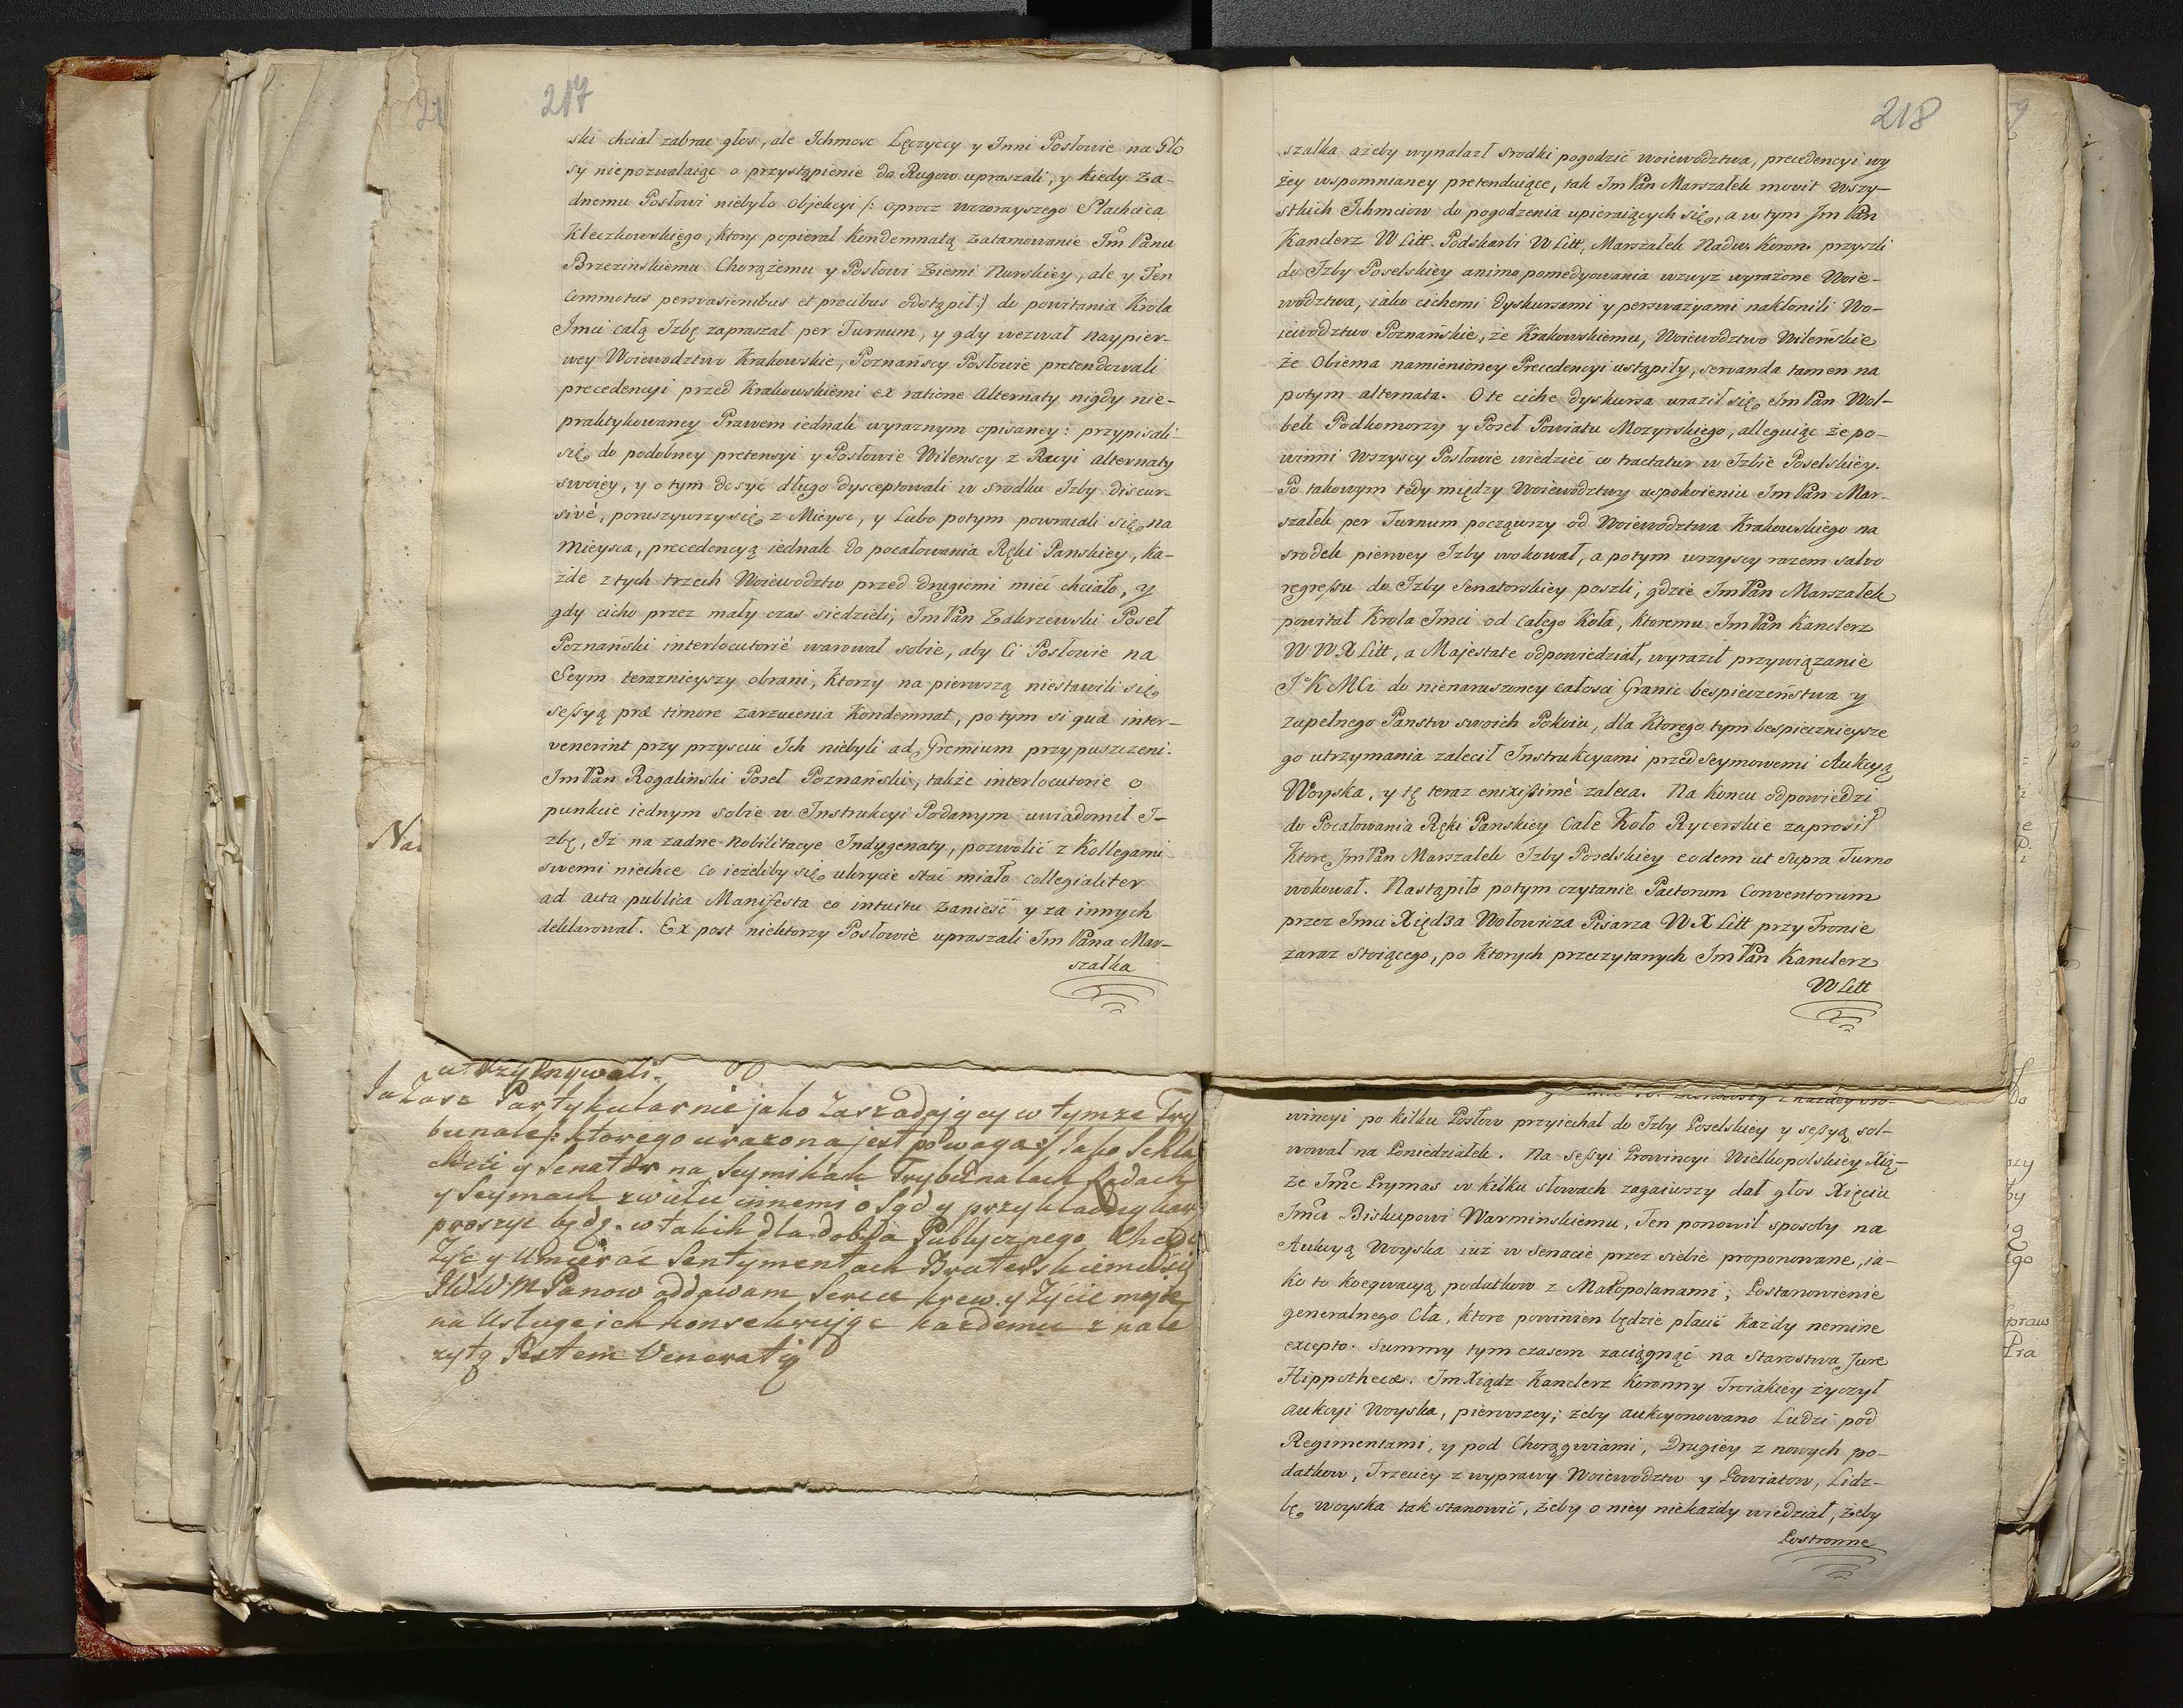 217
ski chciał zabrac głos, ale Ichmosc Łęczyccy y Inni Posłowie na Gło
sy niepozwalaiąc o przystąpienie do Rugow upraszali, y kiedy Ża-
dnemu Posłowi niebyło objekcyi /: oprocz wczorayszego Slachcica
Kleczkowskiego, ktory popierał Kondemnatą zatamowanie Im Panu
Brzezinskiemu Chorążemu y Posłowi Ziemi Nurskiey, ale y Ten
Commotus persvasionibus et precibus odstąpił :/ do powitania Krola
Imci całą Izbę zapraszał per Turnum, y gdy wezwał naypier-
wey Woiewodztwo Krakowskie, Poznańscy Posłowie pretendowali
precedencyi przed Krakowskiemi ex ratione Alternaty nigdy nie-
praktykowaney Prawem iednak wyraznym opisaney: przypisali-
się do podobney pretensyi y Posłowie Wilenscy z Racyi alternaty
swoiey, y o tym dosyć długo dysceptowali w srodku Izby discur-
sivé, poruszywszy się z Mieysc, y Lubo potym powracali się na
Mieysca, precedencyą iednak do pocałowania Ręki Panskiey, ka-
żde z tych trzech Woiewodztw przed drugiemi mieć chciało, y
gdy cicho przez mały czas siedzieli, Im Pan Zakrzewski Poseł
Poznański interlocutorié warował sobie, aby Ci Posłowie na
Seym teraznieyszy obrani, ktorzy na pierwszą niestawili się
sessyą præ timore zarzucenia Kondemnat, po tym si qua inter-
venerint przy przysciu Ich niebyli ad Gremium przypuszczeni.
Im Pan Rogalinski Poseł Poznański, także interlocutorie o
punkcie iednym sobie w Instrukcyi Podanym uwiadomił I-
zbę, Iż na zadne Nobilitacye Indygenaty, pozwolić z Kollegami
swemi niechce co ieżeliby się ukrycie stać miało collegialiter
ad acta publica Manifesta eo intuitu Zanieść y za innych
deklarował. Ex post niektorzy Posłowie upraszali Im Pana Mar-
szałka
218
szałka ażeby wynalazł srodki pogodzić woiewodztwa, precedencyi wy
żey wspomnianey pretenduiące, tak Im Pan Marszałek movit Wszy-
stkich Ichmciow do pogodzenia upieraiących się, a w tym Im Pan
Kanclerz W Litt. Podskarbi W Litt, Marszałek Nadw. Koron. przyszli
do Izby Poselskiey animo pomedyowania wzwyż wyrażone Woie-
wodztwa, iako cichemi dyskursami y perswazyami nakłonili Wo-
iewodztwo Poznańskie, że Krakowskiemu, Woiewodztwo Wileńskie
że Obiema namienioney Precedencyi ustąpiły, servanda tamen na
potym alternata. O te ciche dyskursa uraził się Im Pan Wol-
bek Podkomorzy y Poseł Powiatu Mozyrskiego, alleguiąc że po-
winni Wszyscy Posłowie wiedzieć co tractatur w Izbie Poselskiey.
Po takowym tedy między Woiewodztwy uspokoieniu Im Pan Mar-
szałek per Turnum począwszy od Woiewodztwa Krakowskiego na
srodek pierwey Izby wokował, a potym wszyscy razem salvo
regressu do Izby Senatorskiey poszli, gdzie Im Pan Marszałek
powitał Krola Imci od całego Koła, ktoremu Im Pan Kanclerz
W W X Litt, a Majestate odpowiedział, wyraził przywiązanie
J K MCi do nienaruszoney całosci Granic bespieczeństwa y
zupełnego Panstw swoich Pokoiu, dla ktorego tym bespiecznieysze
go utrzymania zalecił Instrukcyami przed Seymowemi Aukcyą
Woyska, y tę teraz enixissimé zaleca. Na koncu odpowiedzi
do Pocałowania Ręki Panskiey Całe Koło Rycerskie zaprosił
Ktore Im Pan Marszałek Izby Poselskiey eodem ut supra Turno
wokował. Nastąpiło potym czytanie Pactorum Conventorum
przez Imci Xiędza Wołowicza Pisarza W X Litt przy Tronie
zaraz stoiącego, po ktorych przeczytanych Im Pan Kanclerz
W Litt
utrzymywali.
Ja Zasz Partykularnie jako Zaszadający w tymze Try
bunale /: ktorego urazona jest powaga :/ Jako Szla
chcic y Senator na Seymikach Trybunałach Radach
y Seymach z wielu innemi o Sąd y przykładną kar
proszyc będę. w takich dla dobra Publicznego Chcąc
Zyśc y Umierac Sentymentach Braterskiemu się
JWW M Panow oddawam Serce krew y Zycie moje
na Usługe ich konsekrując kazdemu z nale
zytą Jestem Veneratią
wincyi po kilku Posłow przyiechał do Izby Poselskiey y sessyą sol-
wował na Poniedziałek. Na Sessyi Prowincyi Wielkopolskiey Xią-
że Imć Prymas w kilku słowach zagaiwszy dał głos Xięciu
Imci Biskupowi Warminskiemu, Ten ponowił sposoby na
Aukcyą Woyska iuż w Senacie przez siebie proponowane, ia-
ko to koequacyą podatkow z Małopolanami; Postanowienie
generalnego Cła, ktore powinien będzie płacić każdy nemine
excepto. Summy tym czasem zaciągnąć na Starostwa Jure
Hippothecæ. Im Xiądz Kanclerz Koronny Troiakiey życzył
aukcyi Woyska, pierwszey; żeby aukcyonowano Ludzi pod
Regimentami, y pod Chorągwiami, Drugiey z nowych po-
datkow, Trzeciey z wyprawy Woiewodztw y Powiatow, Lidz-
bę woyska tak stanowić, żeby o niey niekażdy wiedział, żeby
Postronne